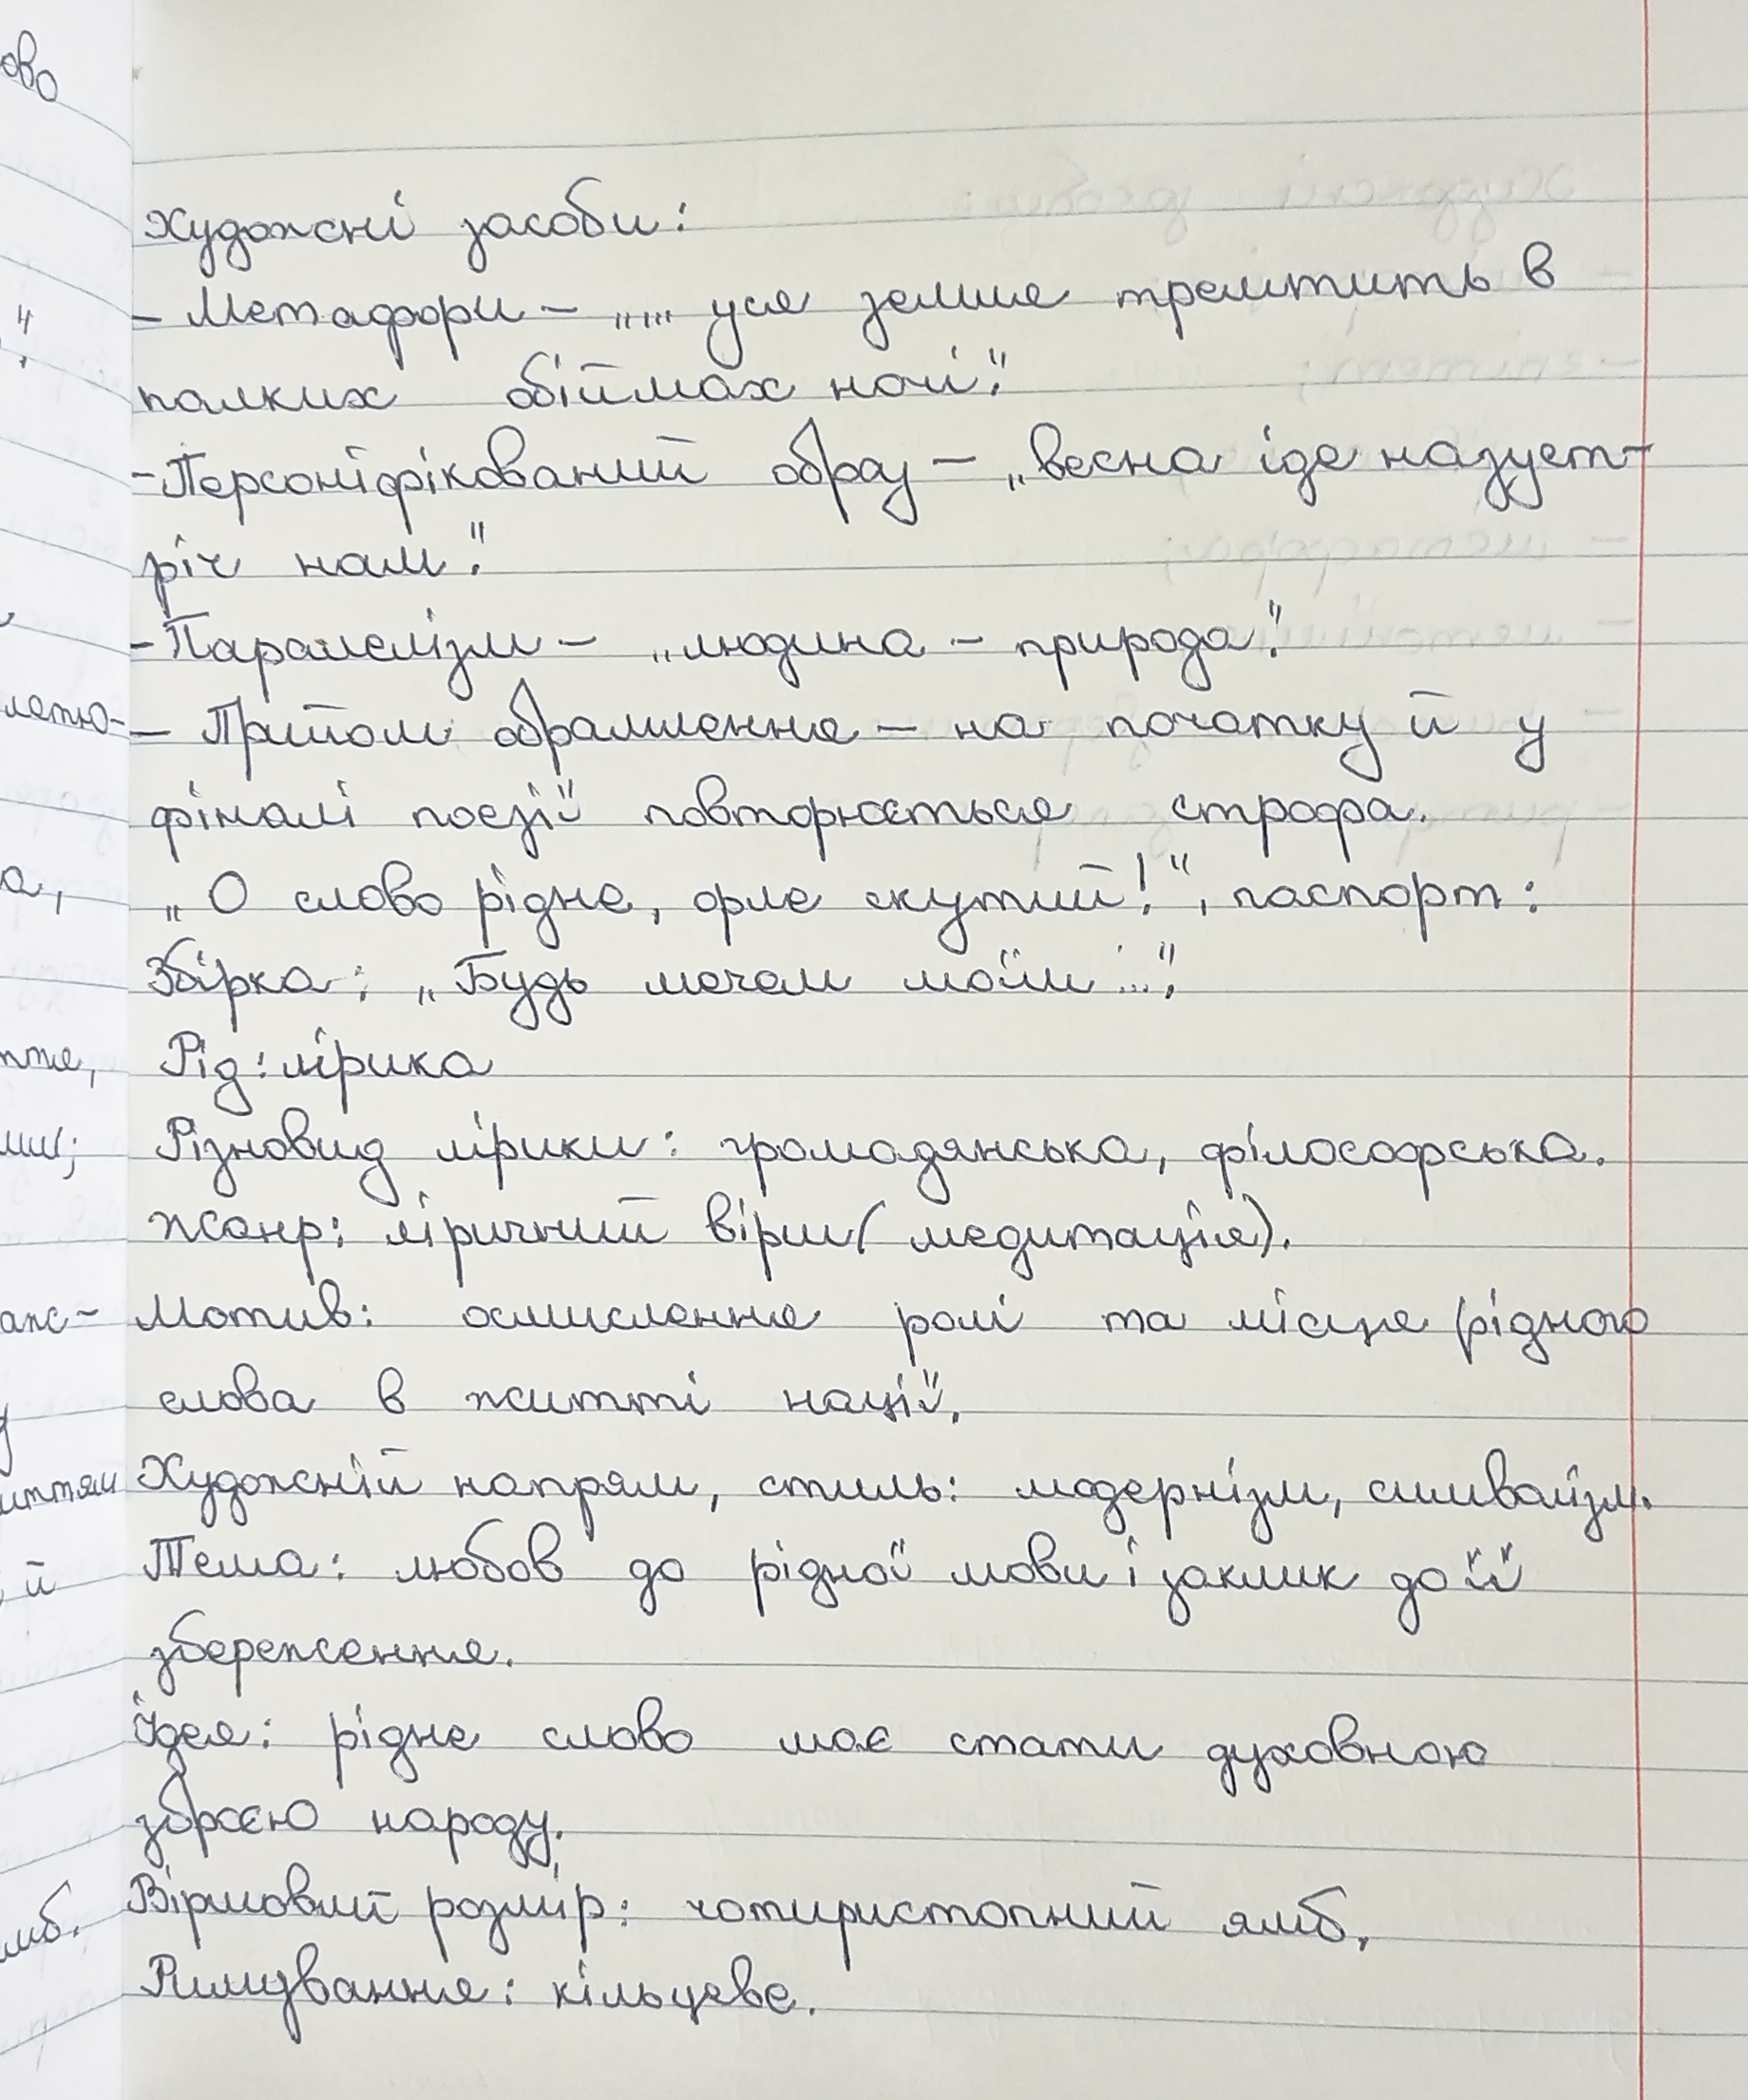 Художні засоби:
- Метафори - „... уся земля тремтить в
палких обіймах ночі".
- Персоніфікований образ - „весна іде назуст-
річ нам".
- Паралелізм - „людина - природа".
- Прийом обрамлення - на початку й у
фіналі поезії повторюється строфа.
„О слово рідне, орле скутий!", паспорт:
Збірка: „Будь мечем моїм...".
Рід: лірика
Різновид лірики: громадянська, філософська.
Жанр: ліричний вірш (медитація).
Мотив: осмислення ролі та місця рідного
слова в житті нації.
Художній напрям, стиль: модернізм, символізм.
Тема: любов до рідної мови і заклик до її
збереження.
Ідея: рідне слово має стати духовною
зброєю народу.
Віршовий розмір: чотиристопний ямб.
Римування: кільцеве.